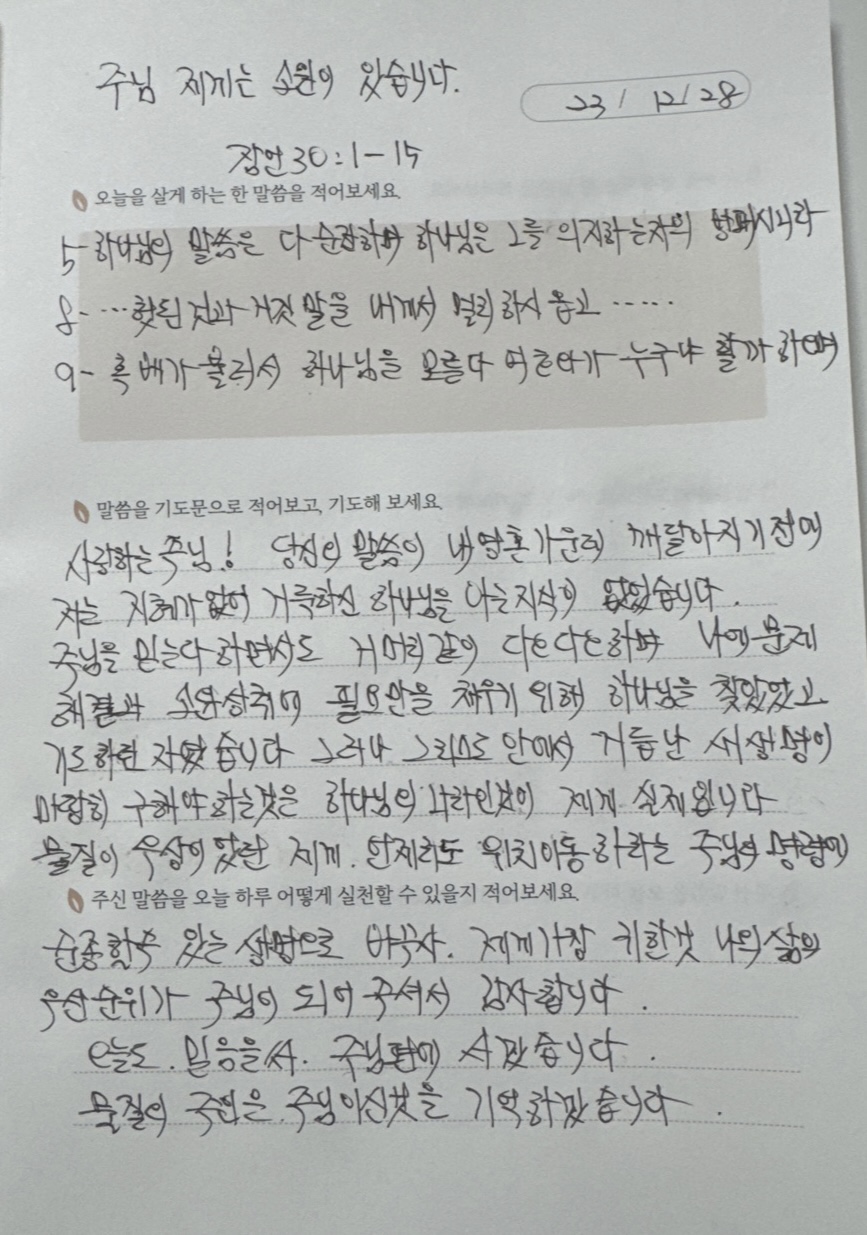 주님 제게는 소원이 있습니다.
23/ 12/28
잠언30:1-15
오늘을 살게 하는 한 말씀을 적어보세요.
5-하나님의 말씀은 다 순전하며 하나님은 그를 의지하는자의 방패시니라
8-…헛된 것과 거짓 말을 내게서 멀리 하시 옵고 ……
9- 혹 배가 불러서 하나님을 모른다 여호와가 누구냐 할까 하여
말씀을 기도문으로 적어보고, 기도해 보세요.
사랑하는 주님! 당신의 말씀이 내영혼가운데 깨달아지기전에
저는 지혜가 없어 거룩하신 하나님을 아는지식이 없었습니다.
주님을 믿는다 하면서도 거머리같이 다오다오하며 나에 문제
해결과 소원성취에 필요만을 채우기 위해 하나님을 찾았었고
기도하던 자였습니다 그러나 그리스도 안에서 거듭난 새생명이
마땅히 구해야하는것은 하나님의 나라인것이 제게 실제입니다
물질이 우상이었던 제게. 언제라도 위치이동하라는 주님의 명령에
주신 말씀을 오늘 하루 어떻게 실천할 수 있을지 적어보세요.
순종할수 있는 생명으로 바꾸사. 제게가장 귀한것 나의삶의
우선순위가 주님이 되어 주셔서 감사합니다.
오늘도. 믿음을 주님편에 서겠습니다.
물질의 주인은 주님이신것을 기억하겠습니다.